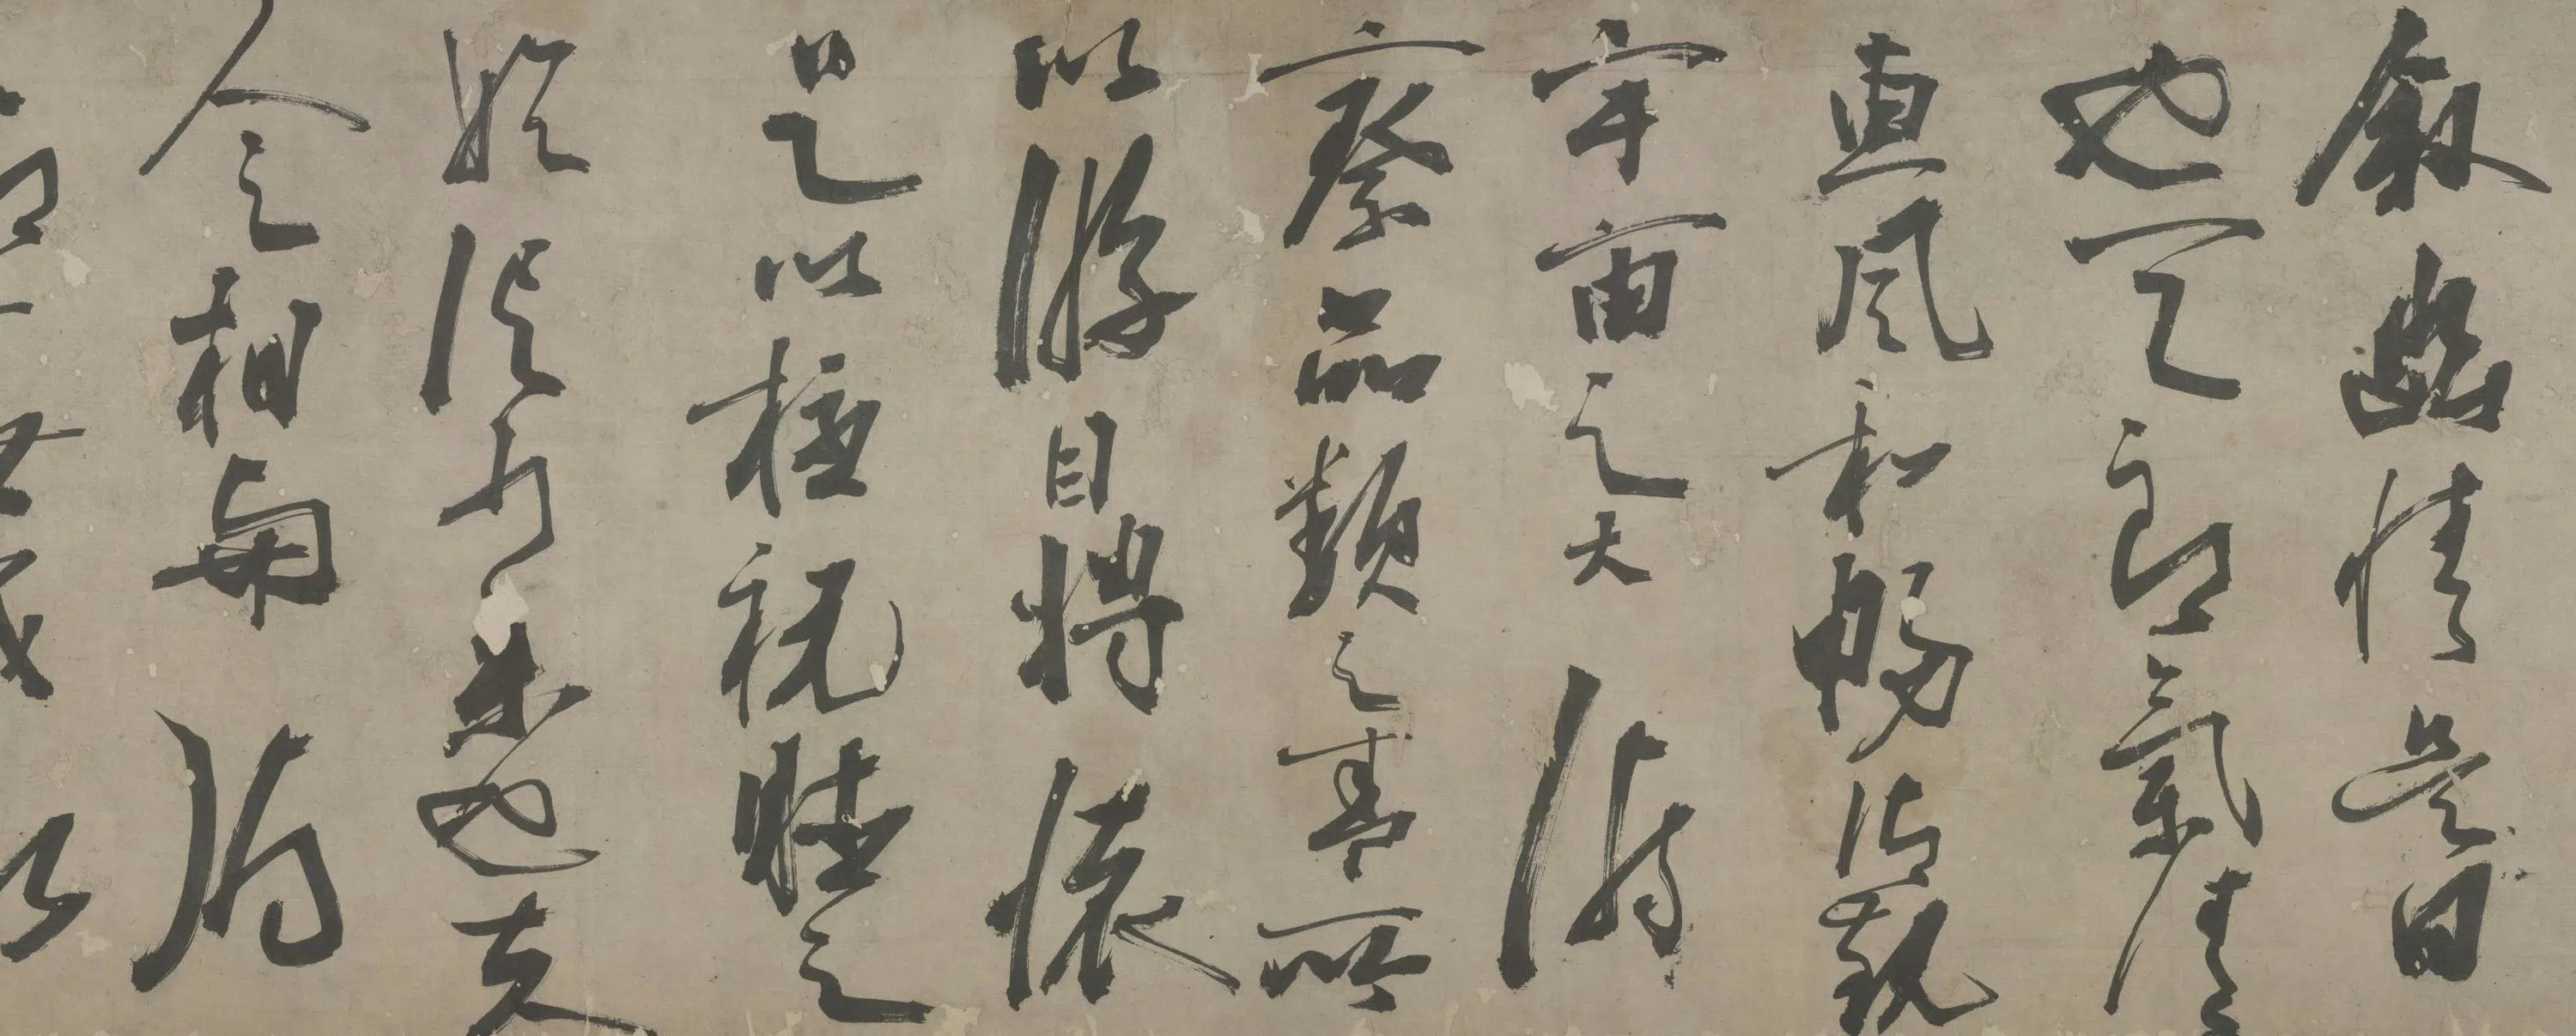 敘幽情是日
也天朗氣清
惠風和暢仰觀
宇宙之大俯
察品類之盛所
以游目騁懷
足以極視聽之
娛信可樂也夫
人之相與俯
仰一世或取